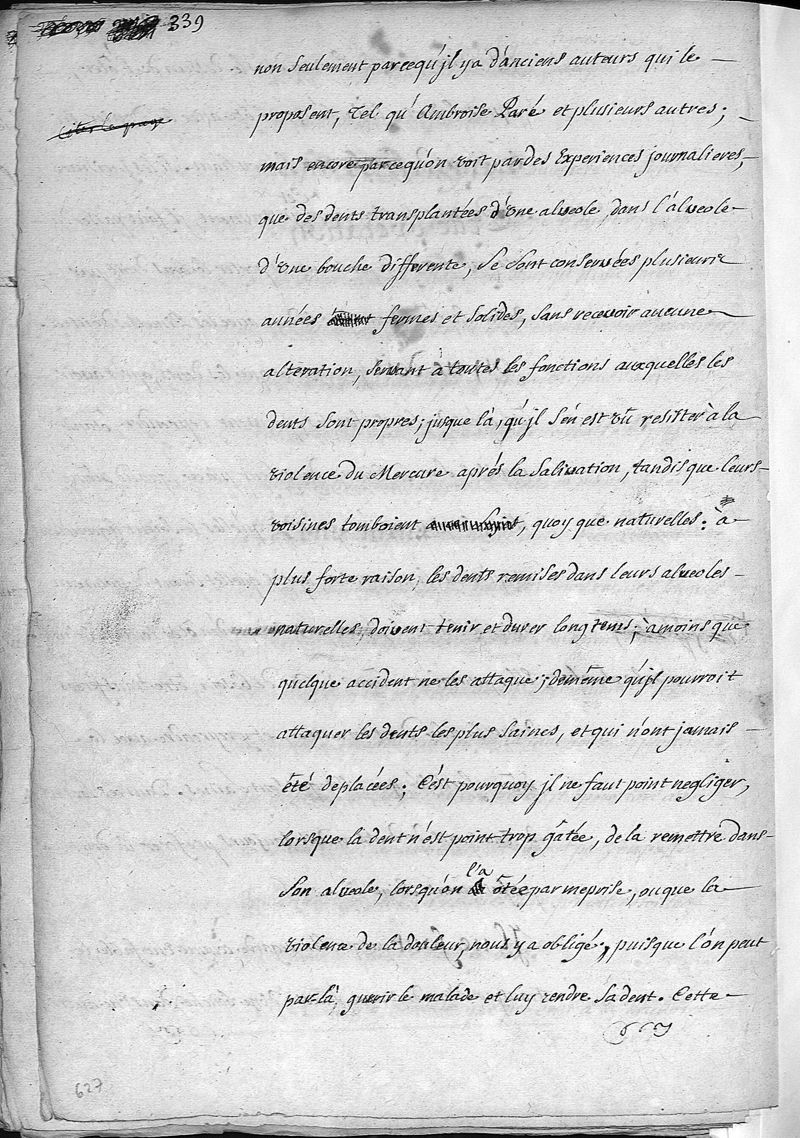 339
Citer la page
non seulement parcequ'jl y a d'anciens auteurs qui le
proposent, Tel qu'Ambroise Paré et plusieurs autres;
mais encore parcequ'on voit par des Experiences journalieres,
que des dents transplantées d'vne alveole, dans l'alveole
d'vne bouche differente, se sont conservées plusieurs
années fermes et solides, sans recevoir aucune
alteration, servant à toutes les fonctions auxquelles les
dents sont propres; jusque là, qu'jl s'en est vû resister à la
violence du Mercure aprés la salivation, tandis que leurs
voisines tomboient, quoy que naturelles: à
plus forte raison, les dents remises dans leurs alveoles
naturelles, doivent tenir et durer longtems; àmoins que
quelque accident ne les attaque; demême qu'jl pourroit
attaquer les dents les plus saines, et qui n'ont jamais
été deplacées; C'est pourquoy jl ne faut point negliger,
lorsque la dent n'est point trop gâtée, de la remettre dans
son alveole, lorsqu'on l'a ôtée par meprise, ou que la
violence de la douleur, nous y a obligé, puisque l'on peut
par-là, guerir le malade et luy rendre sa dent. Cette
627